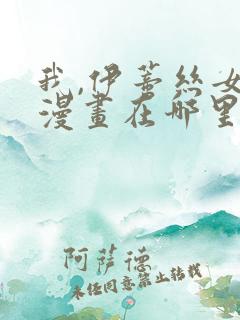 我,伊蒂丝女
漫畫在哪里
阿萨德
未经同意禁止转载